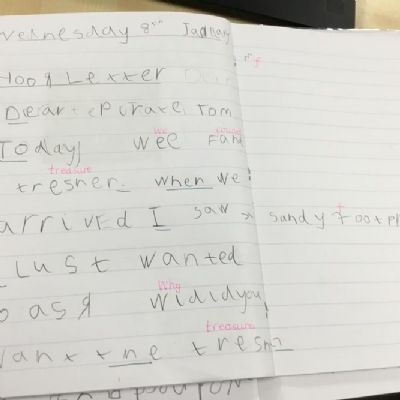 Wednesday 8th January
Letter
Dear pirate Tom
we found
TOday wee Fand
treasure
tresher. when we
arrived I saw sandy Footpr
I Just wanted
Why
to ask Wididyou
treasure
Want the tresh